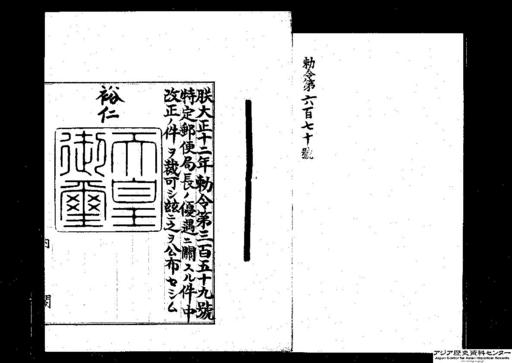 勅令第六百七十號
朕大正十二年勅令第三百五十九號
特定郵便局長ノ優遇ニ關スル件中
改正ノ件ヲ裁可シ玆ニ之ヲ公布セシム
裕仁
天皇
御璽
内閣
アジア歴史資料センター
Japan Center for Asian Historical Records